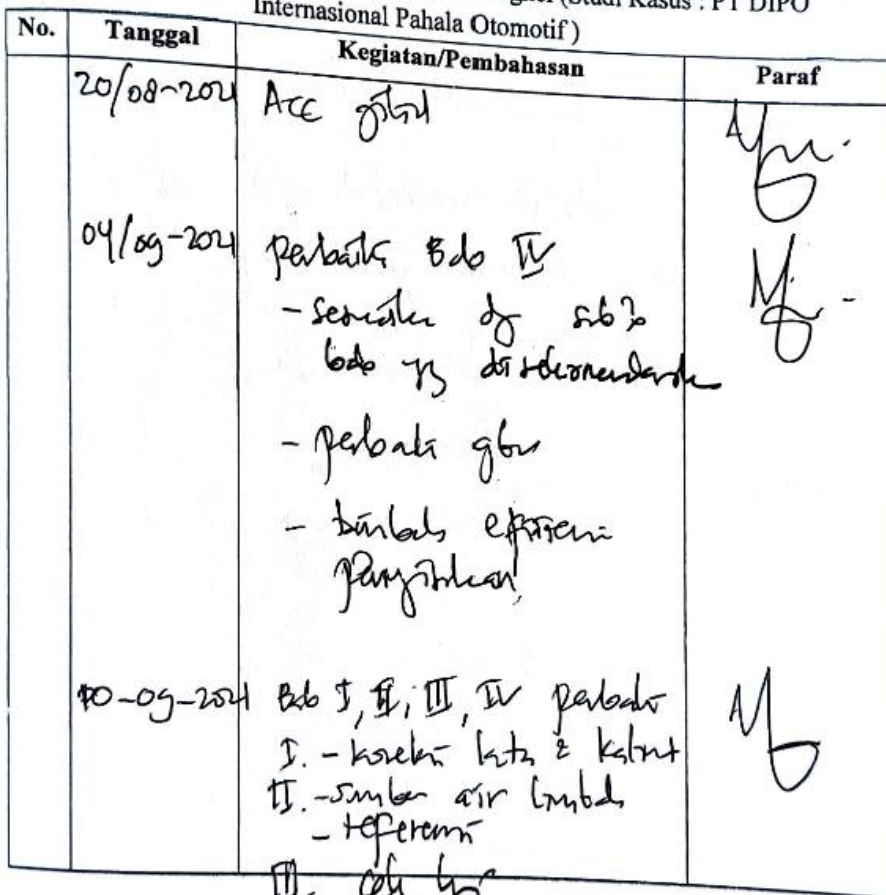 (Studi Kasus : PT DIPO
Internasional Pahala Otomotif )
No. Tanggal Kegiatan/Pembahasan Paraf
20/08-2021 Acc
04/09-2021 perbaiki Bab IV
- sesuaikan dg sub2
bab yg direkomendasik
- perbaiki gbr
- efisiensi
10-09-2021 Bab I, II, III, IV perbaiki
I. - koreksi kata 2 kalimat
II. - sumber air limbah
- referensi
III.